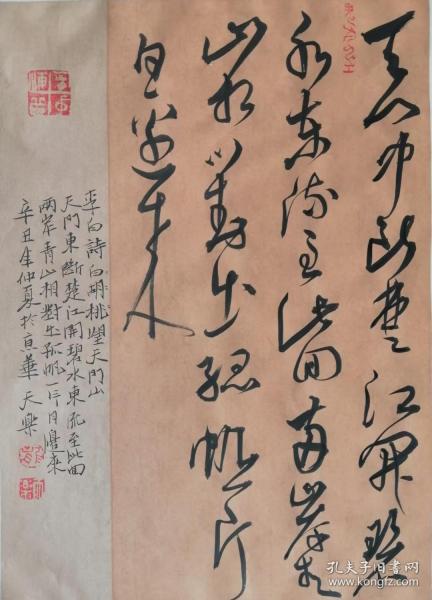 天门中断楚江开碧
水东流至此回两岸青
山相对出孤帆一片
日边来
李白詩 望天門山
天門東斷楚江開碧水東流至此回
兩岸青山相對出孤帆一片日邊來
辛丑年仲夏於京華 天樂
孔夫子旧书网
www.kongfz.com